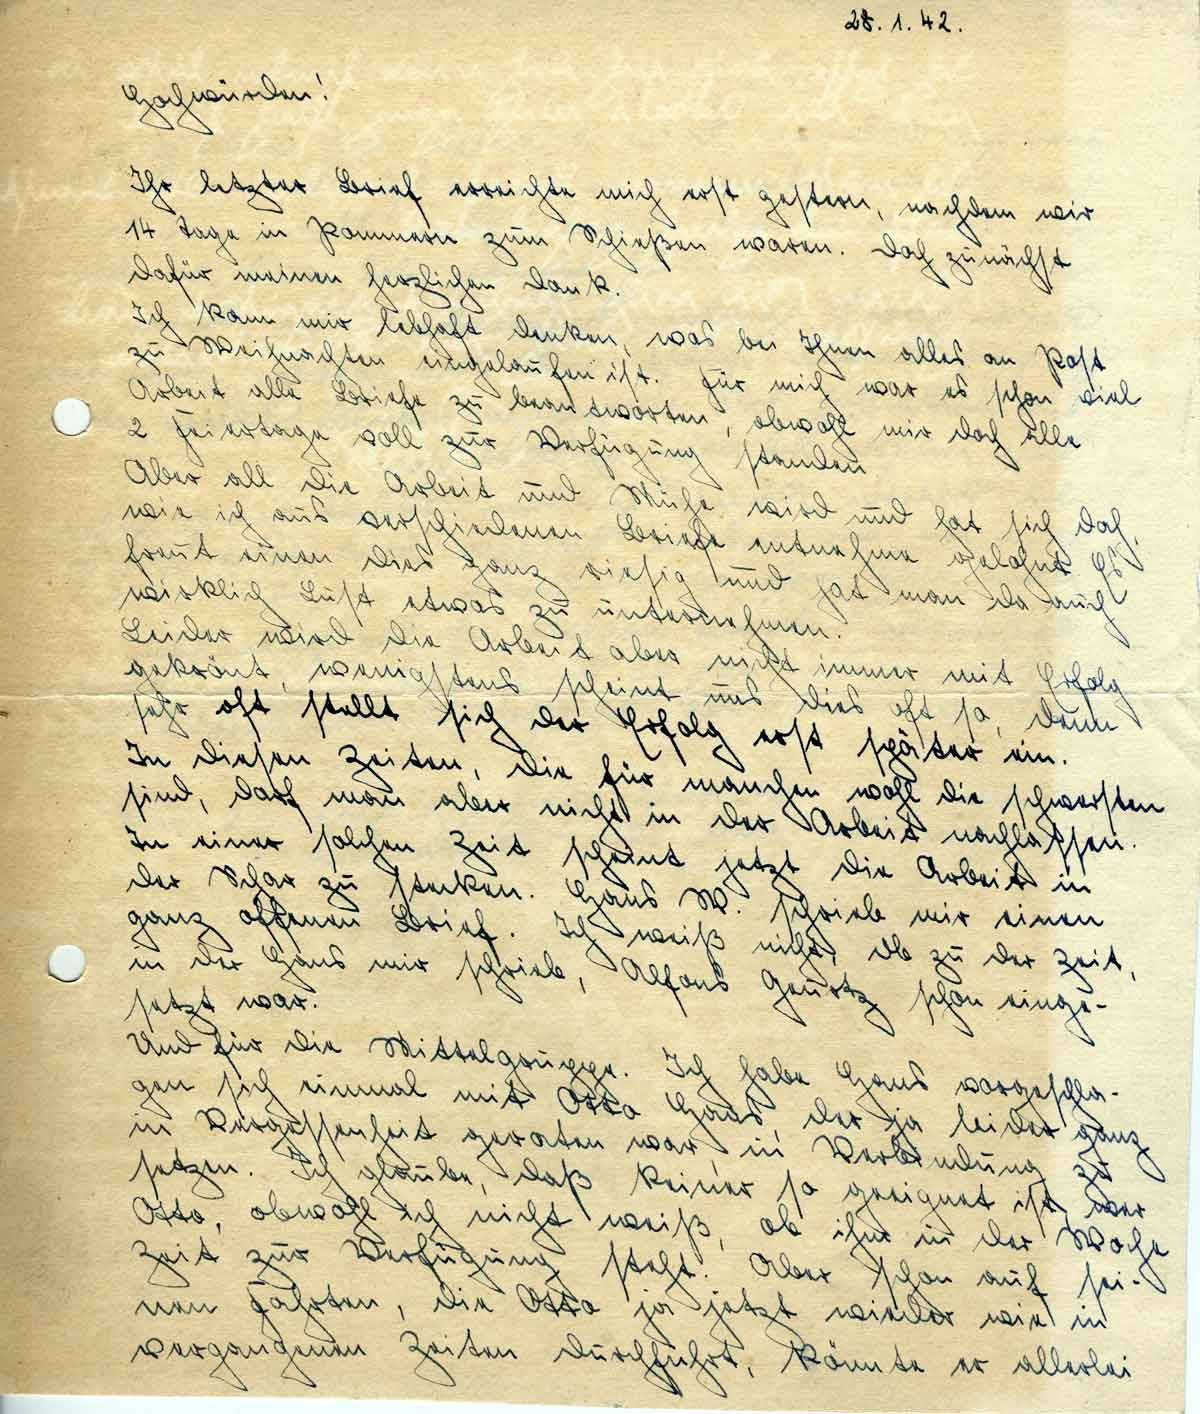 28.1.42.
Hochwürden!
Ihr letzter Brief erreichte mich erst gestern, nachdem wir
14 Tage in Pommern zum Schießen waren. Doch zunächst
dafür meinen herzlichen Dank.
Ich kann mir lebhaft denken, was bei Ihnen alles an Post
zu Weihnachten eingelaufen ist. Für mich war es schon viel
Arbeit alle Briefe zu beantworten, obwohl mir doch alle
2 Feiertage voll zur Verfügung standen
Aber all die Arbeit und Mühe wird und hat sich doch,
wie ich aus verschiedenen Briefe entnehme gelohnt. Es
freut einen dies ganz riesig und hat man da auch
wirklich Lust etwas zu unternehmen.
Leider wird die Arbeit aber nicht immer mit Erfolg
gekrönt, wenigstens scheint uns dies oft so, denn
sehr oft stellt sich der Erfolg erst später ein.
In diesen Zeiten, die für manchen wohl die schwersten
sind, darf man aber nicht in der Arbeit nachlassen.
In einer solchen Zeit scheint jetzt die Arbeit in
der Schar zu stecken. Hans W. schrieb mir einen
ganz offenen Brief. Ich weiß nicht, ob zu der Zeit,
in der Hans mir schrieb, Alfons Geurtz schon einge-
setzt war.
Und für die Mittelgruppe. Ich habe Hans vorgeschla-
gen sich einmal mit Otto Haas, der ja leider ganz
in Vergessenheit geraten war, in Verbindung zu
setzen. Ich glaube, daß keiner so geeignet ist, wer
Otto, obwohl ich nicht weiß, ob ihm in der Woche
Zeit zur Verfügung steht. Aber schon auf sei-
nen Fahrten, die Otto ja jetzt wieder wie in
vergangenen Zeiten durchführt, könnte er allerlei